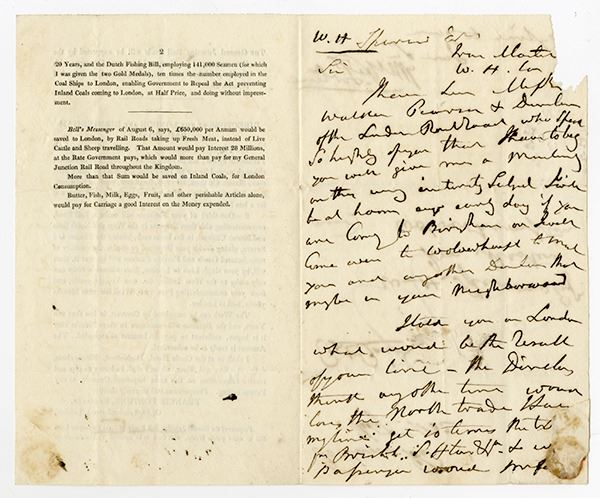 2
20 Years, and the Dutch Fishing Bill, employing 141,000 Seamen (for which
I was given the two Gold Medals), ten times the number employed in the
Coal Ships to London, enabling Government to Repeal the Act preventing
Inland Coals coming to London, at Half Price, and doing without impress-
ment.
Bell's Messenger of August 6, says, £650,000 per Annum would be
saved to London, by Rail Roads taking up Fresh Meat, instead of Live
Cattle and Sheep travelling. That Amount would pay Interest 28 Millions,
at the Rate Government pays, which would more than pay for my General
Junction Rail Road throughout the Kingdom.
More than that Sum would be saved on Inland Coals, for London
Consumption.
Butter, Fish, Milk, Eggs, Fruit, and other perishable Articles alone,
would pay for Carriage a good Interest on the Money expended.
W. H
Iron Master
Sir W. H.
I have seen
Walden Pearson &
of the London Rail Road who speak
so highly of you that I have to beg
you will give me a meeting
on this very
be at home any day if you
are Coming to Birmingham or I will
Come over to to meet
you and any other that
may be in your Neighborwood
I told you in London
what would be the Result
of your line - the
think any other line would
the North trade
my line get 10 times the
for Bristol &
Passenger would